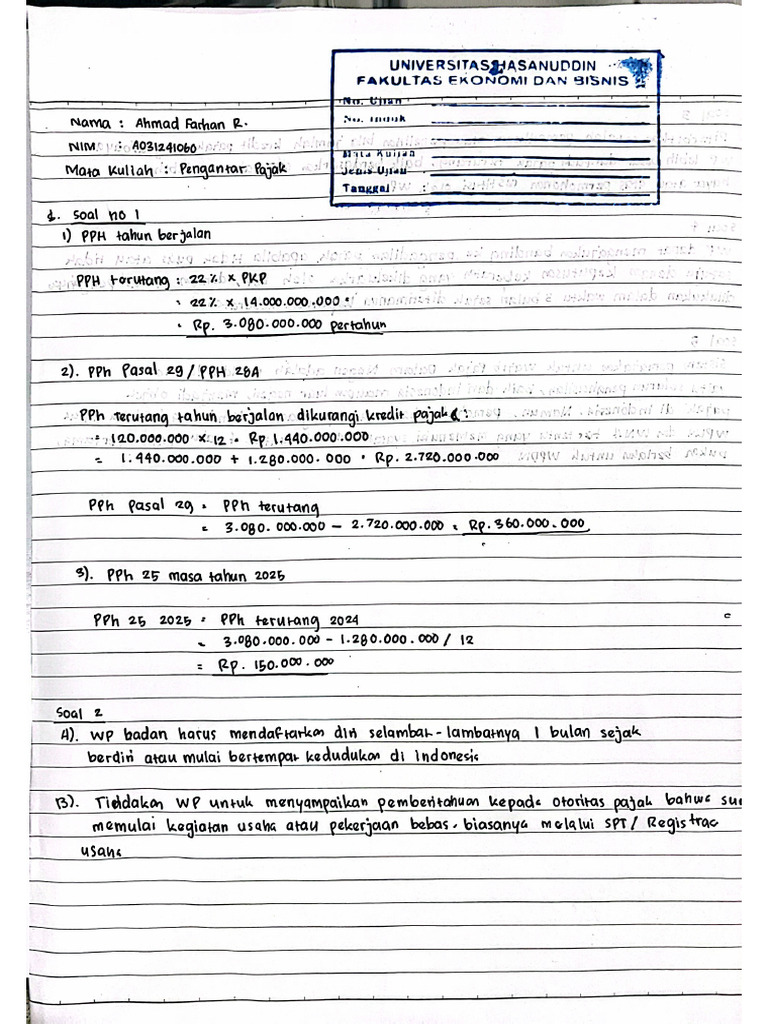 UNIVERSITAS HASANUDDIN
FAKULTAS EKONOMI DAN BISNIS
No. Ujian
No. Induk
Mata Kuliah
Jenis Ujian
Tanggal :
Nama : Ahmad Farhan R.
NIM : A031241060
Mata Kuliah : Pengantar Pajak
1. Soal no 1
1) PPH tahun berjalan
PPH terutang : 22% x PKP
: 22% x 14.000.000.000
. Rp. 3.080.000.000 pertahun
2). PPh Pasal 29 / PPH 28A
PPh terutang tahun berjalan dikurangi kredit pajak :
= 120.000.000 x 12 = Rp 1.440.000.000
= 1.440.000.000 + 1.280.000.000 = Rp. 2.720.000.000
PPh Pasal 29 = PPh terutang
= 3.080.000.000 - 2.720.000.000 = Rp. 360.000.000
3). PPh 25 masa tahun 2025
PPh 25 2025 = PPh terutang 2024
= 3.080.000.000 - 1.280.000.000 / 12
= Rp. 150.000.000
Soal 2
A). WP badan harus mendaftarkan diri selambat-lambatnya 1 bulan sejak
berdiri atau mulai bertempat kedudukan di indonesia
B). Tindakan WP untuk menyampaikan pemberitahuan kepada otoritas pajak bahwa
memulai kegiatan usaha atau pekerjaan bebas. biasanya melalui SPT /
usaha